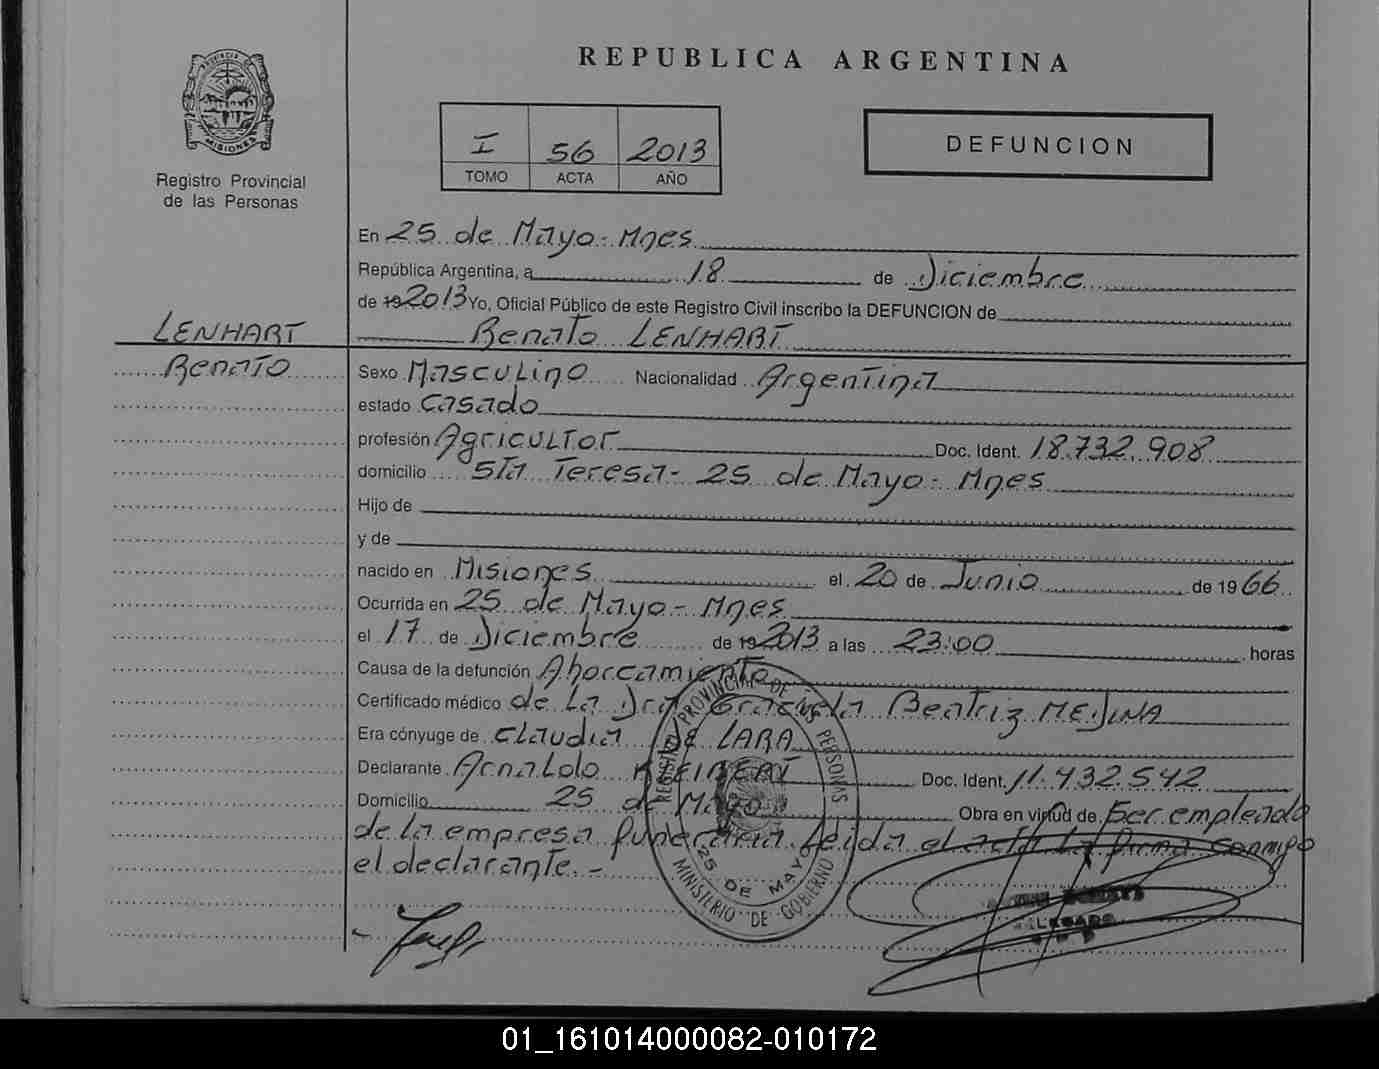 REPUBLICA ARGENTINA
PROVINCIA DE
MISIONES
Registro Provincial
de las Personas
I 56 2013
TOMO ACTA AÑO
DEFUNCION
En 25 de Mayo - Mnes
República Argentina, a 18 de Diciembre
de 19 2013 Yo, Oficial Público de este Registro Civil inscribo la DEFUNCION de
Renato LENHART
LENHART
Renato
Sexo Masculino Nacionalidad Argentina
estado Casado
profesión Agricultor Doc. Ident. 18.732.908
domicilio Sta Teresa - 25 de Mayo - Mnes
Hijo de
y de
nacido en Misiones el 20 de Junio de 1966
Ocurrida en 25 de Mayo - Mnes
el 17 de Diciembre de 19 2013 a las 23:00 horas
Causa de la defunción Ahorcamiento
Certificado médico de la Dra Graciela Beatriz MEDINA
Era cónyuge de Claudia De LARA
Declarante Arnaldo Doc. Ident. 11.432.542
Domicilio 25 de Mayo Obra en virtud de Ser empleado
de la empresa funeraria. Leida el acta la firma conmigo
el declarante. -
REGISTRO PROVINCIAL DE LAS PERSONAS
25 DE MAYO
MINISTERIO DE GOBIERNO
01_161014000082-010172